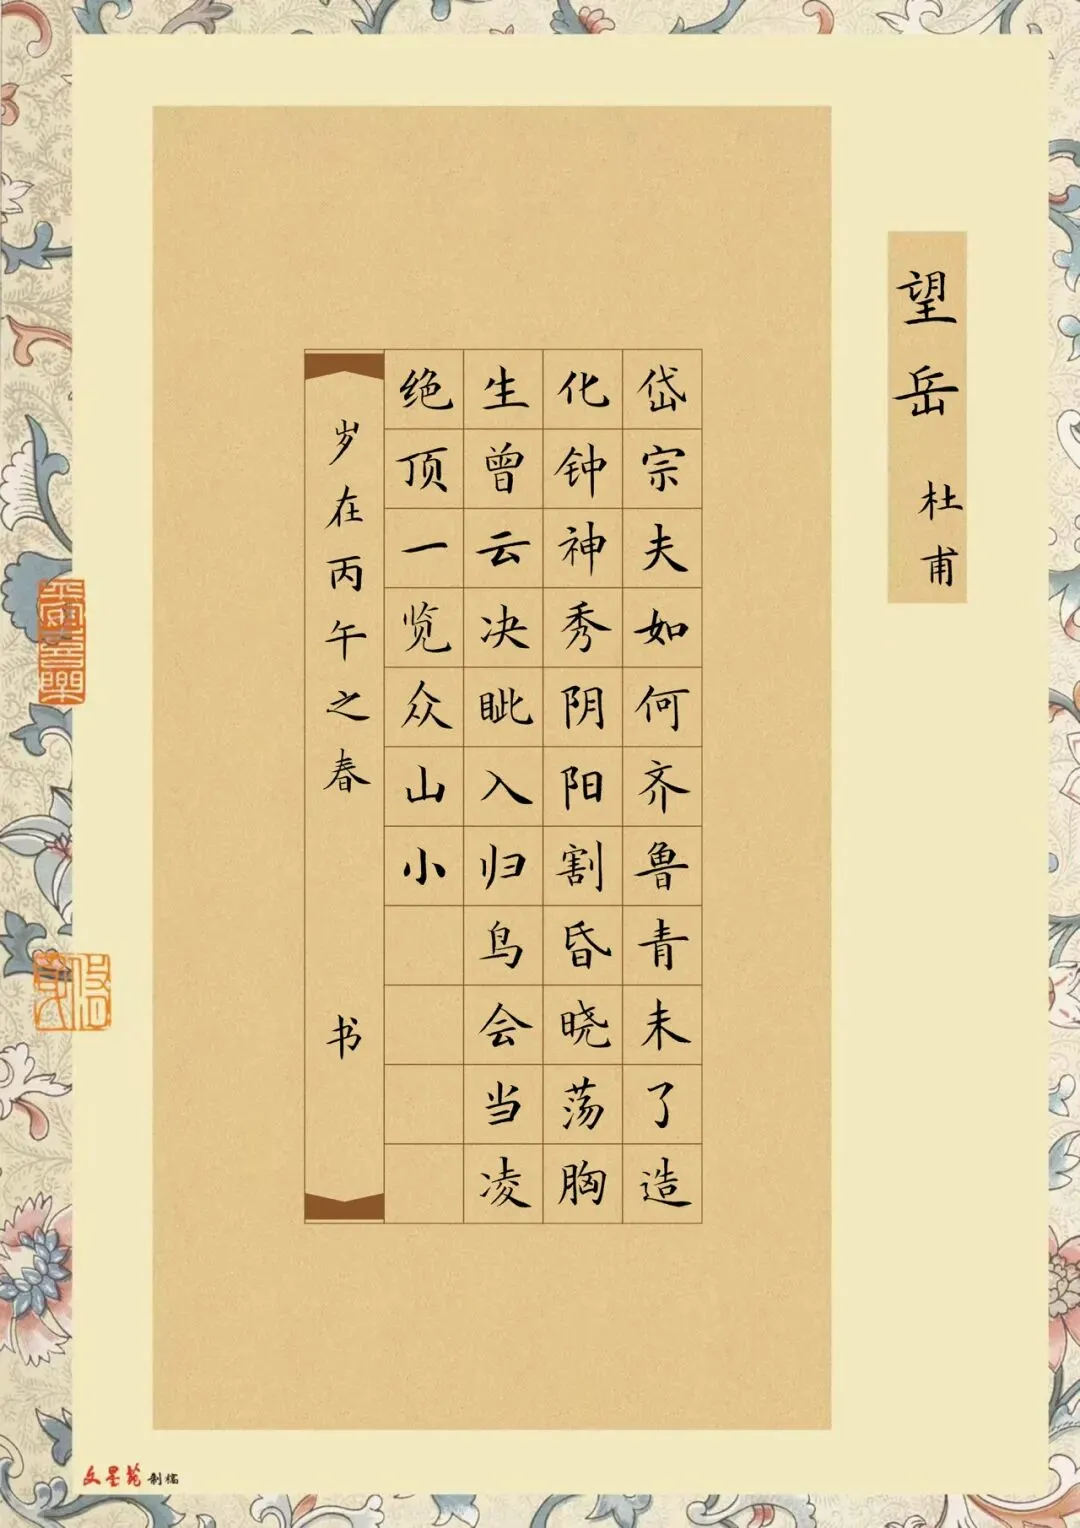 望岳 杜甫
岱宗夫如何齐鲁青未了造
化钟神秀阴阳割昏晓荡胸
生曾云决眦入归鸟会当凌
绝顶一览众山小
岁在丙午之春 书
文星苑制稿